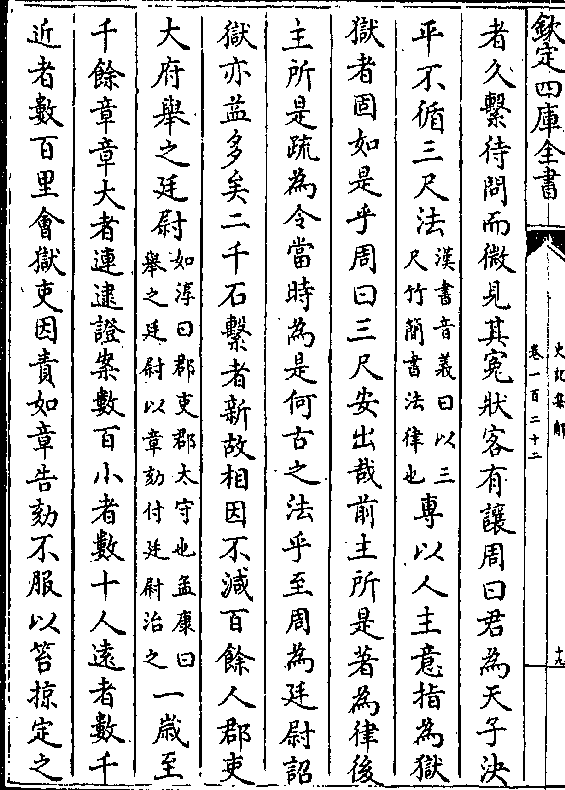 欽定四庫全書
史記集解
卷一百二十二
十九
者久繫待問而微見其寃狀客有讓周曰君為天子決
平不循三尺法漢書音義曰以三尺竹簡書法律也專以人主意指為獄
獄者固如是乎周曰三尺安出哉前主所是著為律後
主所是疏為令當時為是何古之法乎至周為廷尉詔
獄亦益多矣二千石繫者新故相因不減百餘人郡吏
大府舉之廷尉如淳曰郡吏郡太守也孟康曰舉之廷尉以章劾付廷尉治之一歲至
千餘章章大者連逮證案數百小者數十人遠者數千
近者數百里會獄吏因責如章告劾不服以笞掠定之